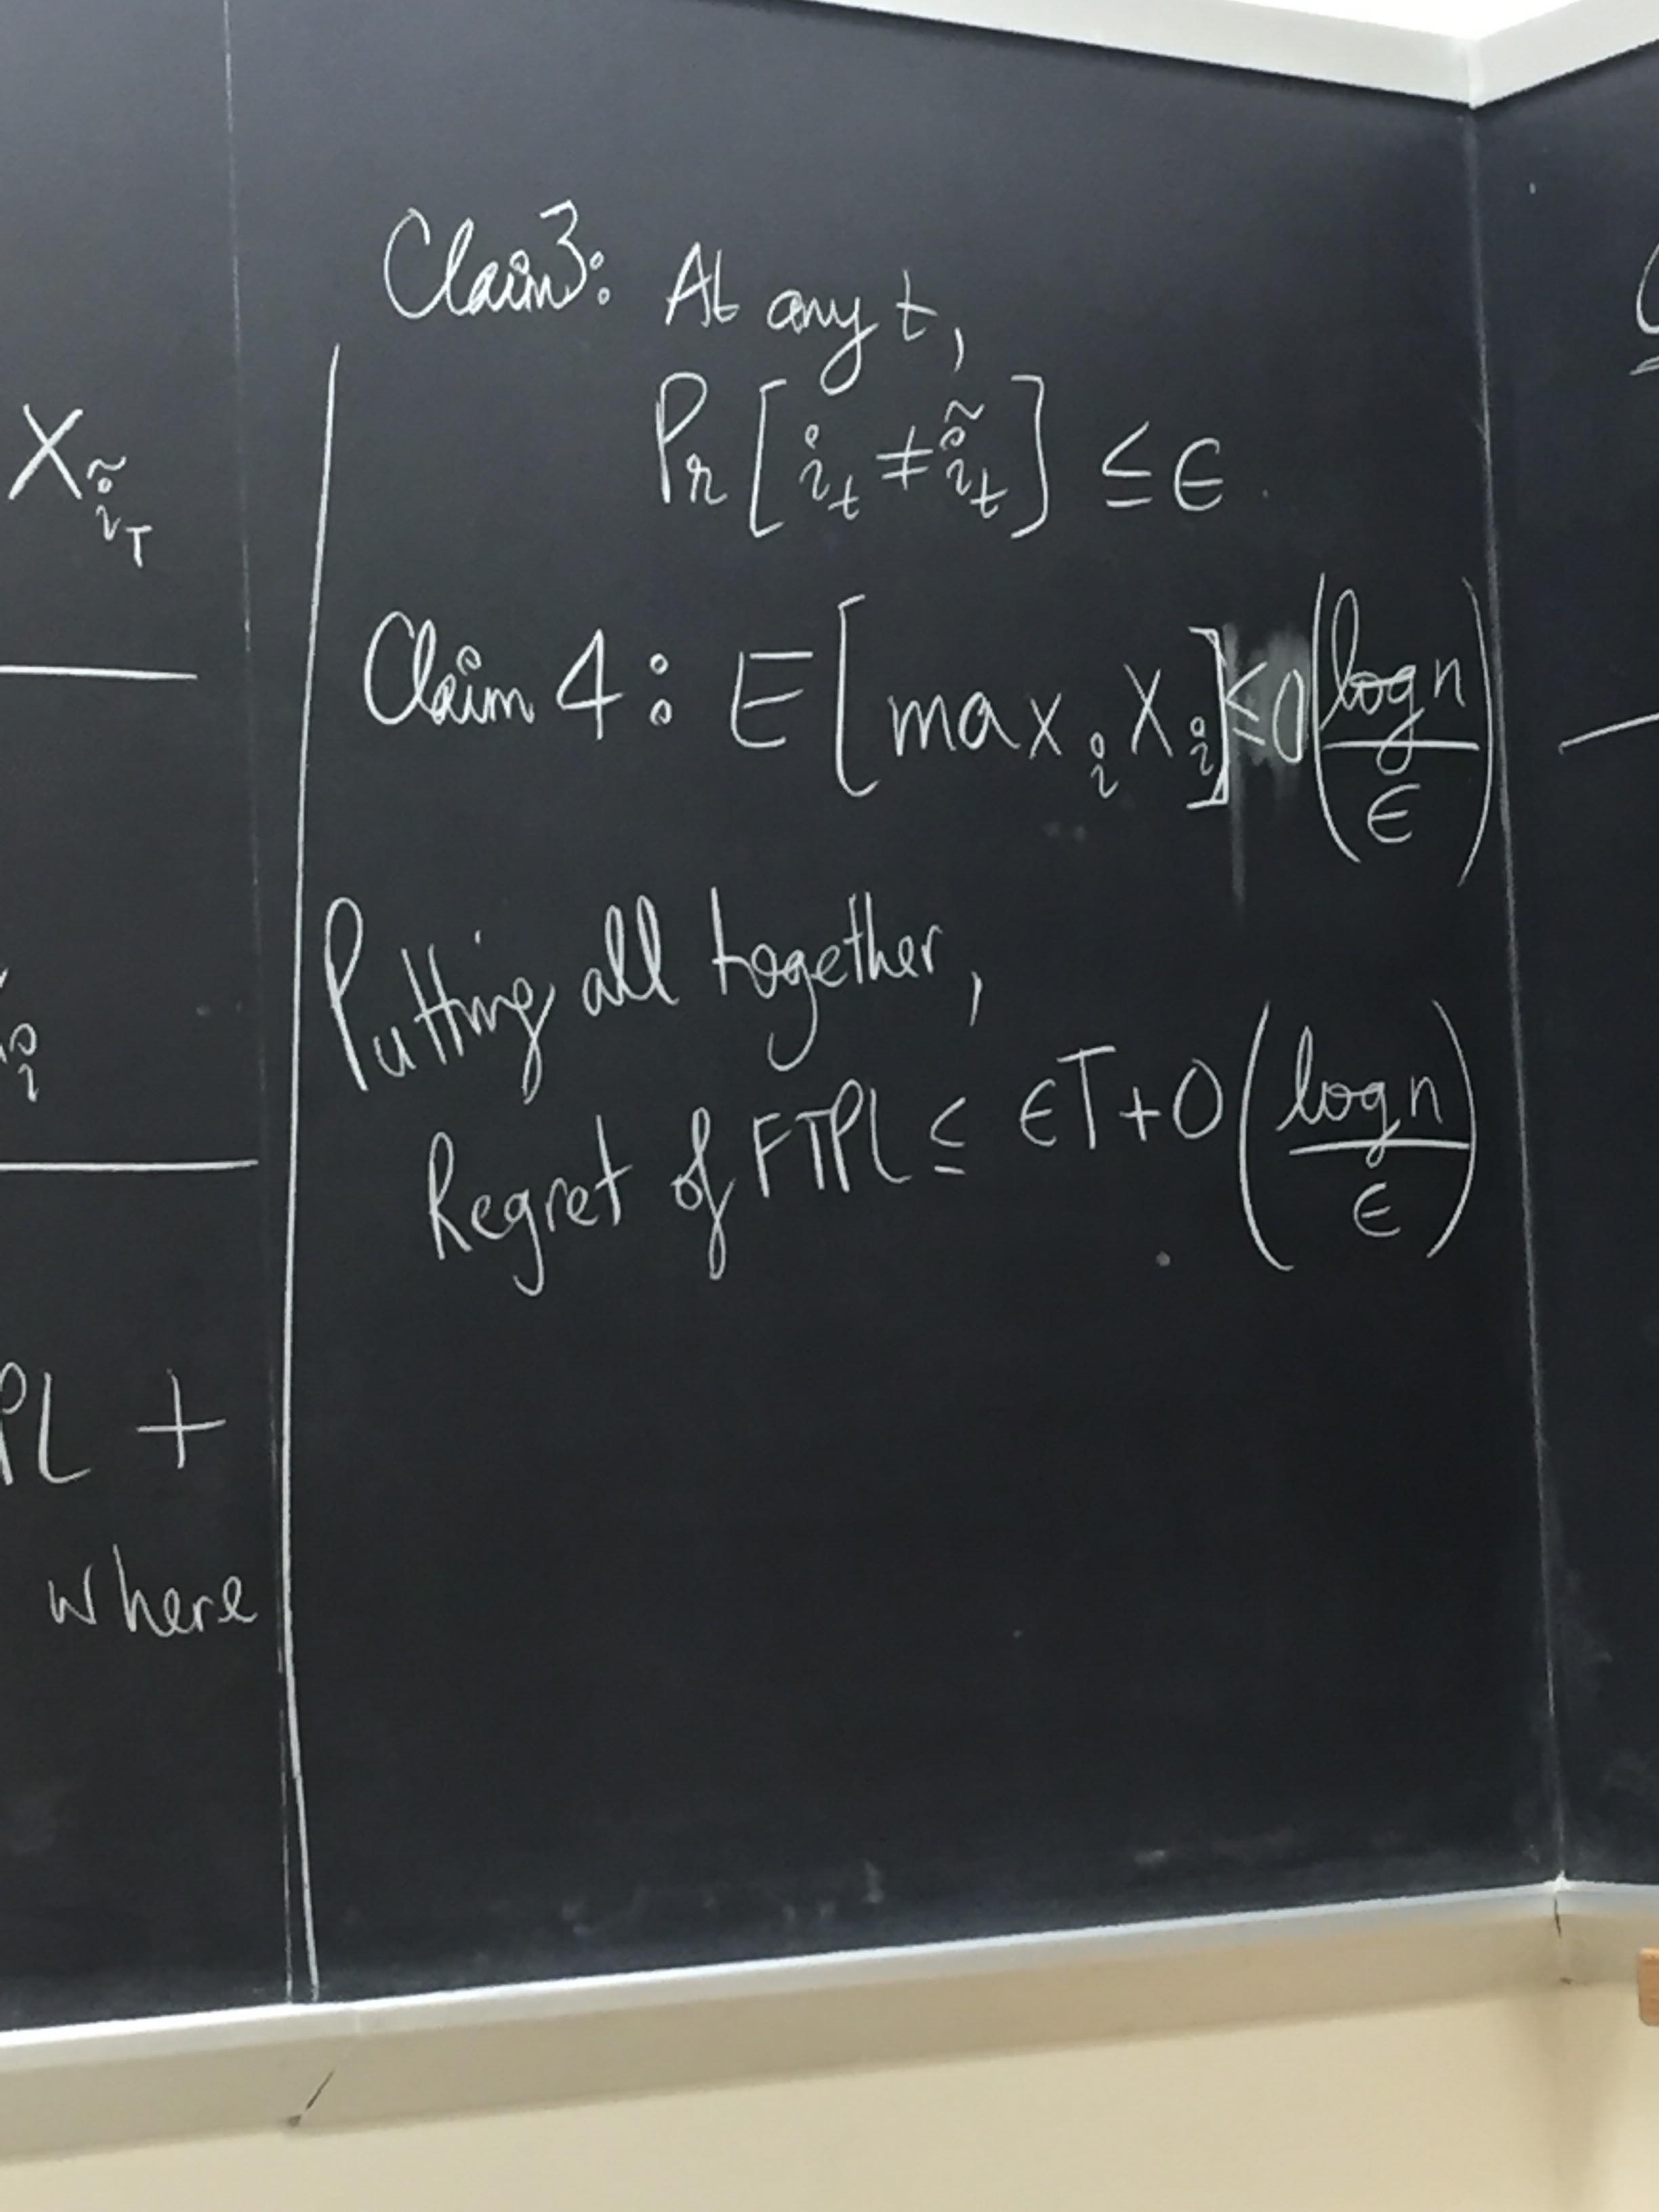 X_{ĩ_T}
PL +
where
Claim 3: At any t,
Pr[i_t ≠ ĩ_t] ≤ ∈
Claim 4: E[max_i X_i] ≤ O(log n / ∈)
Putting all together,
Regret of FTPL ≤ ∈T + O(log n / ∈)